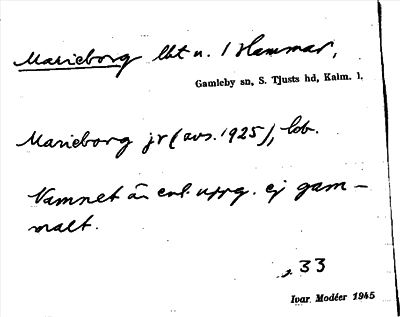 Marieborg lht u. / Hammar,
Gamleby sn, S. Tjusts hd, Kalm. l.
Marieborg jr (avs. 1925), lob.
Namnet är enl. uppg. ej gam-
malt.
s. 33
Ivar Modéer 1945